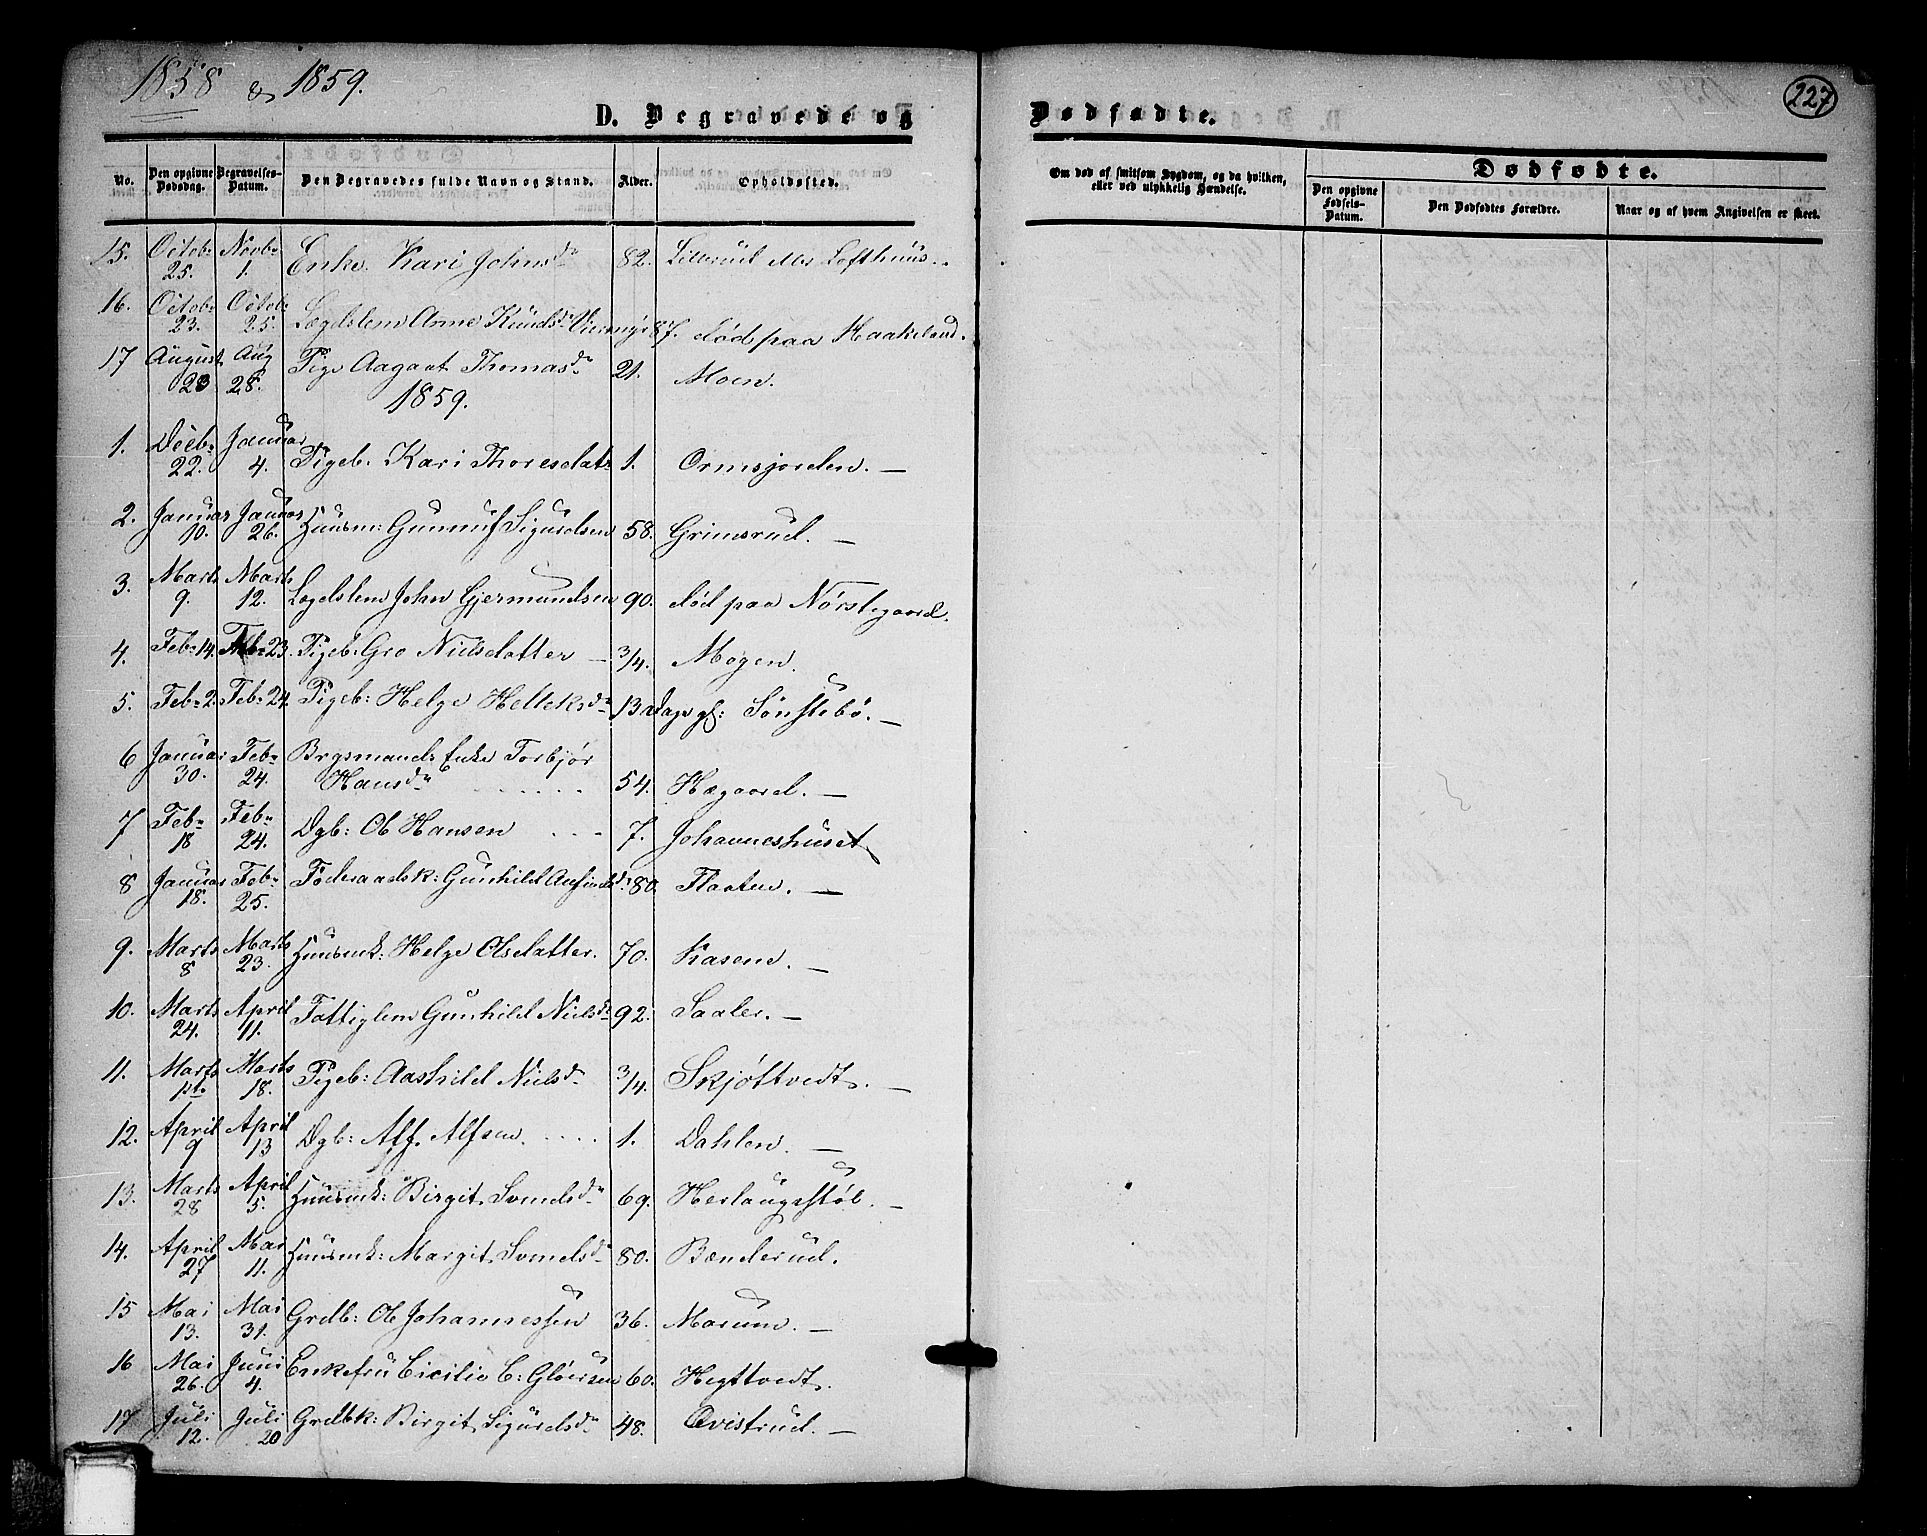 1858 & 1859.
227
D. Begravede og Dødfødte.
No. Den opgivne Dødsdag. Begravelses-Datum. Den Begravedes fulde Navn og Stand. Alder. Opholdssted. Om død af smitsom Sygdom, og da hvilken, eller ved ulykkelig Hændelse. Dødfødte.
Den opgivne Fødsels-Datum. Den Dødfødtes Forældre. Naar og af hvem Angivelsen er skeet.
15. Octob: 25. Novb: 1. Enke Kari Johnsd: 82. Lillerud Lofthuus.
16. Octob: 23. Octob: 25. Lægdslem Anne Knudsd: 87. død paa Haakeland.
17 August 23 Aug 28. Pige Aagaat Thomasd: 21. Moen.
1859.
1. Decb: 22. Januar 4. Pigeb. Kari Thoresdatr 1. Ormsjorden. —
2. Januar 10. Januar 26. Huusm: Gunnuf Sigurdsen 58. Grimsrud. —
3. Marts 9. Marts 12. Lægdslem John Gjermundsen 90. død paa Nørstegaard.
4. Feb: 14. Feb: 23. Pigeb. Gro Nielsdatter — 3/4. Mogen.
5. Feb: 2. Feb: 24. Pigeb: Helge Helleksd: 13 Dage gl: Sønstebö. —
6 Januar 30. Feb: 24. Brgsmands Enke Torbjør
Hansd: 54. Hægaard. —
7 Feb: 18 Feb: 24. Dgb: Ole Hansen 7. Johanneshuset
8 Januar 18. Feb: 25. Foderaadsk: Gunhild Anfindsd: 80. Flaaten. —
9. Marts 8 Marts 23. Huusmk: Helge Olsdatter. 70. Kasene. —
10. Marts 24. April 11. Fattiglem Gunhild Nielsd: 92. Saaler. —
11. Marts 1ste Marts 18. Pigeb: Aashild Nielsd: 3/4. Skjöttvedt. —
12. April 9 April 13 Dgb: Alf. Alfsen. 1. Dahlen. —
13. Marts 28 April 5. Huusmk: Birgit Svendsd: 69. Herlaugsstöl. —
14. April 27 Mai 11. Huusmk: Margit Svendsd: 80. Bænderud.
15 Mai 13. Mai 31. Grdb: Ole Johannessen 36. Marum. —
16 Mai 26. Juni 4. Enkefru Cicilie C: Glöersen 60. Hegttvedt.
17 Juli 12. Juli 20 Grdbk: Birgit Sigurdsd: 48. Qvistrud. —